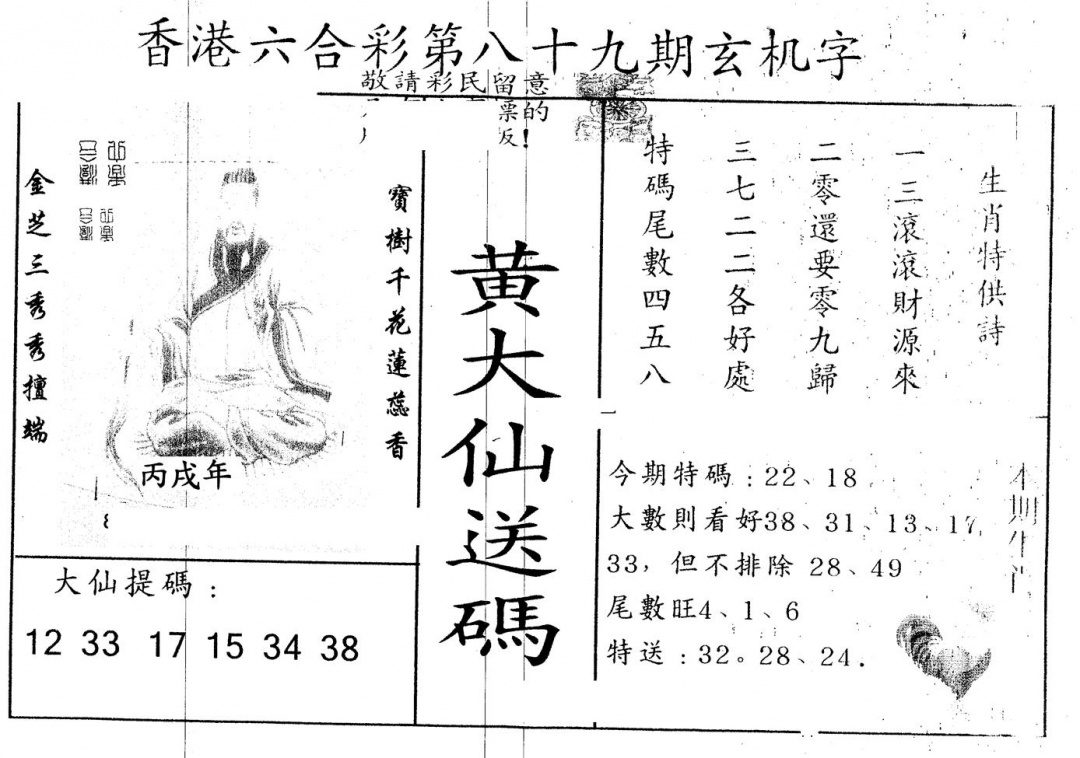 香港六合彩第八十九期玄机字
敬請彩民留意
票的
!
生肖特供詩
一三滾滾財源來
二零還要零九歸
三七二二各好處
特碼尾數四五八
黄大仙送碼
寶樹千花蓮蕊香
金芝三秀秀擅端
丙戌年
大仙提碼：
12 33 17 15 34 38
今期特碼：22、18
大數則看好38、31、13、17
33，但不排除 28、49
尾數旺4、1、6
特送：32。28、24.